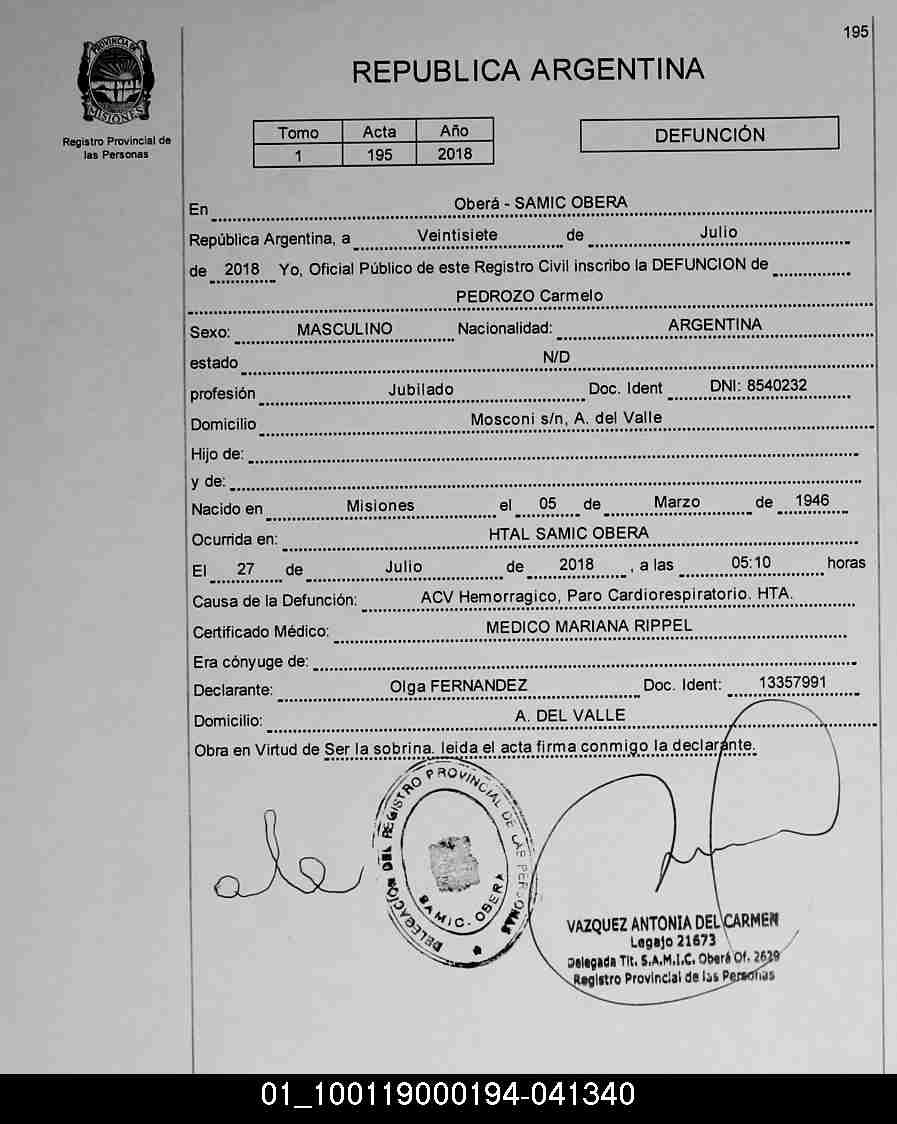 195
PROVINCIA DE
MISIONES
Registro Provincial de
las Personas
REPUBLICA ARGENTINA
Tomo Acta Año
1 195 2018
DEFUNCIÓN
En Oberá - SAMIC OBERA
República Argentina, a Veintisiete de Julio
de 2018 Yo, Oficial Público de este Registro Civil inscribo la DEFUNCION de
PEDROZO Carmelo
Sexo: MASCULINO Nacionalidad: ARGENTINA
estado N/D
profesión Jubilado Doc. Ident DNI: 8540232
Domicilio Mosconi s/n, A. del Valle
Hijo de:
y de:
Nacido en Misiones el 05 de Marzo de 1946
Ocurrida en: HTAL SAMIC OBERA
El 27 de Julio de 2018 , a las 05:10 horas
Causa de la Defunción: ACV Hemorragico, Paro Cardiorespiratorio. HTA.
Certificado Médico: MEDICO MARIANA RIPPEL
Era cónyuge de:
Declarante: Olga FERNANDEZ Doc. Ident: 13357991
Domicilio: A. DEL VALLE
Obra en Virtud de Ser la sobrina. leida el acta firma conmigo la declarante.
DELEGACIÓN DEL REGISTRO PROVINCIAL DE LAS PERSONAS
S.A.M.I.C. OBERA
VAZQUEZ ANTONIA DEL CARMEN
Legajo 21673
Delegada Tit. S.A.M.I.C. Oberá Of. 2629
Registro Provincial de las Personas
01_100119000194-041340